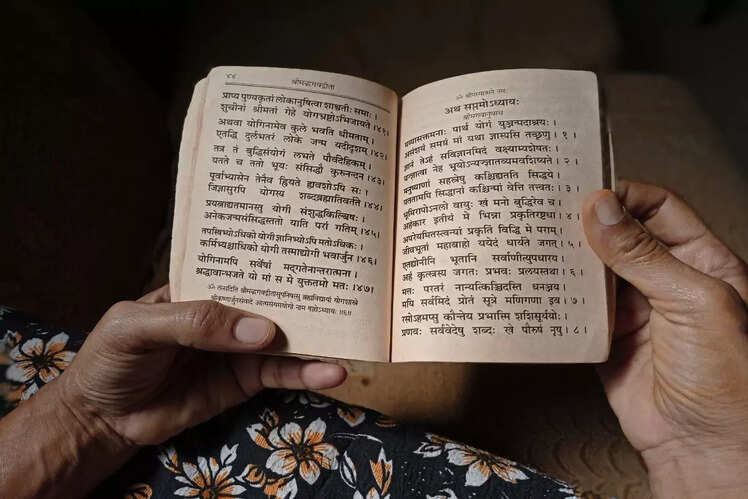 श्रीमद्भगवद्गीता
प्राप्य पुण्यकृतां लोकानुषित्वा शाश्वतीः समाः ।
शुचीनां श्रीमतां गेहे योगभ्रष्टोऽभिजायते ।४१।
अथवा योगिनामेव कुले भवति धीमताम् ।
एतद्धि दुर्लभतरं लोके जन्म यदीदृशम् ।४२।
तत्र तं बुद्धिसंयोगं लभते पौर्वदेहिकम् ।
यतते च ततो भूयः संसिद्धौ कुरुनन्दन ।४३।
पूर्वाभ्यासेन तेनैव ह्रियते ह्यवशोऽपि सः ।
जिज्ञासुरपि योगस्य शब्दब्रह्मातिवर्तते ।४४।
प्रयत्नाद्यतमानस्तु योगी संशुद्धकिल्बिषः ।
अनेकजन्मसंसिद्धस्ततो याति परां गतिम् ।४५।
तपस्विभ्योऽधिको योगी ज्ञानिभ्योऽपि मतोऽधिकः ।
कर्मिभ्यश्चाधिको योगी तस्माद्योगी भवार्जुन ।४६।
योगिनामपि सर्वेषां मद्गतेनान्तरात्मना ।
श्रद्धावान्भजते यो मां स मे युक्ततमो मतः ।४७।
ॐ तत्सदिति श्रीमद्भगवद्गीतासूपनिषत्सु ब्रह्मविद्यायां योगशास्त्रे
श्रीकृष्णार्जुनसंवादे आत्मसंयमयोगो नाम षष्ठोऽध्यायः ॥६॥
ॐ श्रीपरमात्मने नमः
अथ सप्तमोऽध्यायः
श्रीभगवानुवाच
मय्यासक्तमनाः पार्थ योगं युञ्जन्मदाश्रयः ।
असंशयं समग्रं मां यथा ज्ञास्यसि तच्छृणु । १ ।
ज्ञानं तेऽहं सविज्ञानमिदं वक्ष्याम्यशेषतः ।
यज्ज्ञात्वा नेह भूयोऽन्यज्ज्ञातव्यमवशिष्यते । २ ।
मनुष्याणां सहस्रेषु कश्चिद्यतति सिद्धये ।
यततामपि सिद्धानां कश्चिन्मां वेत्ति तत्त्वतः । ३ ।
भूमिरापोऽनलो वायुः खं मनो बुद्धिरेव च ।
अहंकार इतीयं मे भिन्ना प्रकृतिरष्टधा । ४ ।
अपरेयमितस्त्वन्यां प्रकृतिं विद्धि मे पराम् ।
जीवभूतां महाबाहो ययेदं धार्यते जगत् । ५ ।
एतद्योनीनि भूतानि सर्वाणीत्युपधारय ।
अहं कृत्स्नस्य जगतः प्रभवः प्रलयस्तथा । ६ ।
मत्तः परतरं नान्यत्किञ्चिदस्ति धनञ्जय ।
मयि सर्वमिदं प्रोतं सूत्रे मणिगणा इव । ७ ।
रसोऽहमप्सु कौन्तेय प्रभास्मि शशिसूर्ययोः ।
प्रणवः सर्ववेदेषु शब्दः खे पौरुषं नृषु । ८ ।